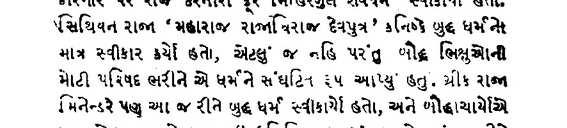 સિથિયન રાજા 'મહારાજ રાજાધિરાજ દેવપુત્ર' કનિષ્કે બુદ્ધ ધર્મને
માત્ર સ્વીકાર કર્યો હતો, એટલું જ નહિ પરંતુ બૌદ્ધ ભિક્ષુઓની
મોટી પરિષદ ભરીને એ ધર્મને સંઘટિત રૂપ આપ્યું હતું. ગ્રીક રાજા
મિનેન્ડરે પણ આ જ રીતે બુદ્ધ ધર્મ સ્વીકાર્યો હતો, અને બૌદ્ધાચાર્યોએ